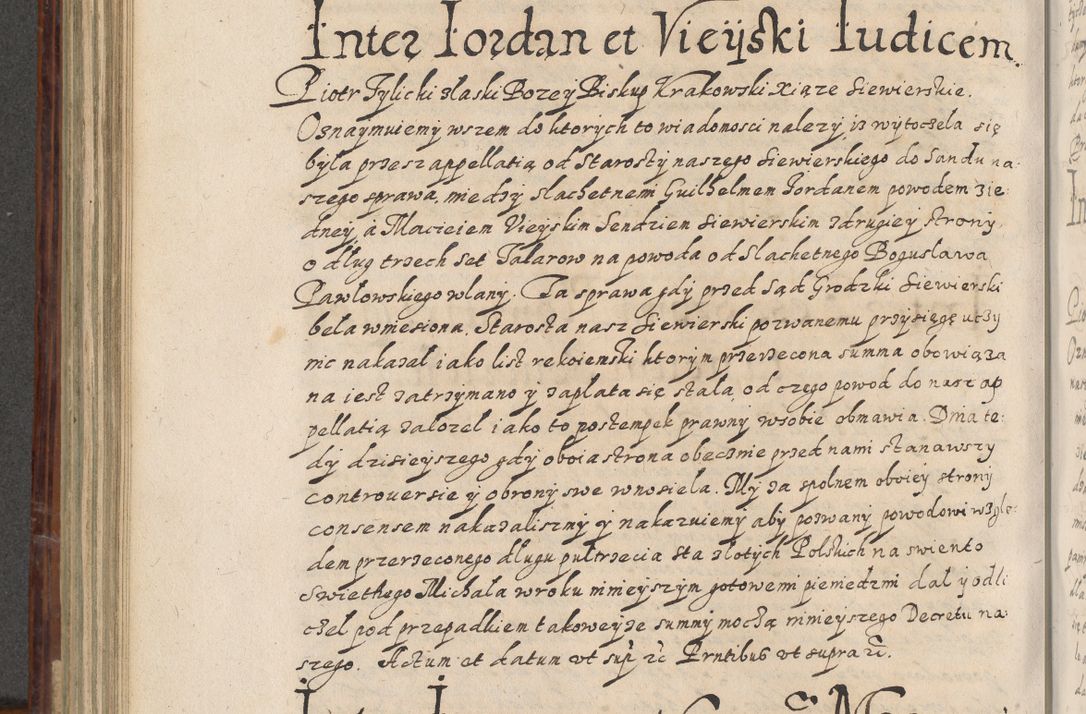 Inter Iordan et Vieÿski Iudicem.
Piotr Tylicki zlaski Bozey Biskup Krakowski Xiąze Siewierskie.
Oznaymuiemy wszem do ktorych to wiadomosci nalezy, iz wytoczela się
była przesz appellatią od Starosty naszego Siewierskiego do Sandu na
szego sprawa, miedzy Slachetnemi Guilhelmem Iordanem powodem zie
dney, a Macieiem Vieyskim Sendziem Siewierskim zdrugiey strony
o dług trzech set Talarow na powoda od Slachetnego Bogusława
Pawlowskiego wlany. Ta sprawa gdy przed Sąd Grodzki Siewierski
bela wniesiona, Starosta nasz Siewierski pozwanemu przysięgę uczy
nic nakazal iako list rekoiemski ktorym przerzecona summa obowiąza
na iest zatrzymano y zaplata się stala, od czego powod do nasz ap
pellatią zalozel iako to postempek prawny wsobie obmawia. Dnia te
dy dzisieyszego gdy oboia strona obecznie przed nami stanawszy
controuersie y obrony swe wnosiela. My za spolnem oboiey strony
consensem nakazalismy y nakazuiemy aby pozwany powodowi wzglę
dem przerzeconego dlugu pultrzecia sta złotych Polskich na swiento
swiethego Michala wroku ninieyszym gotowemi pieniedzmi dal y odli
czel pod przepadkiem takoweyze summy mocżą ninieyszego Decretu na
szego. Actum et datum vt sup̃ rc̃ Prntibus vt supra rc̃.